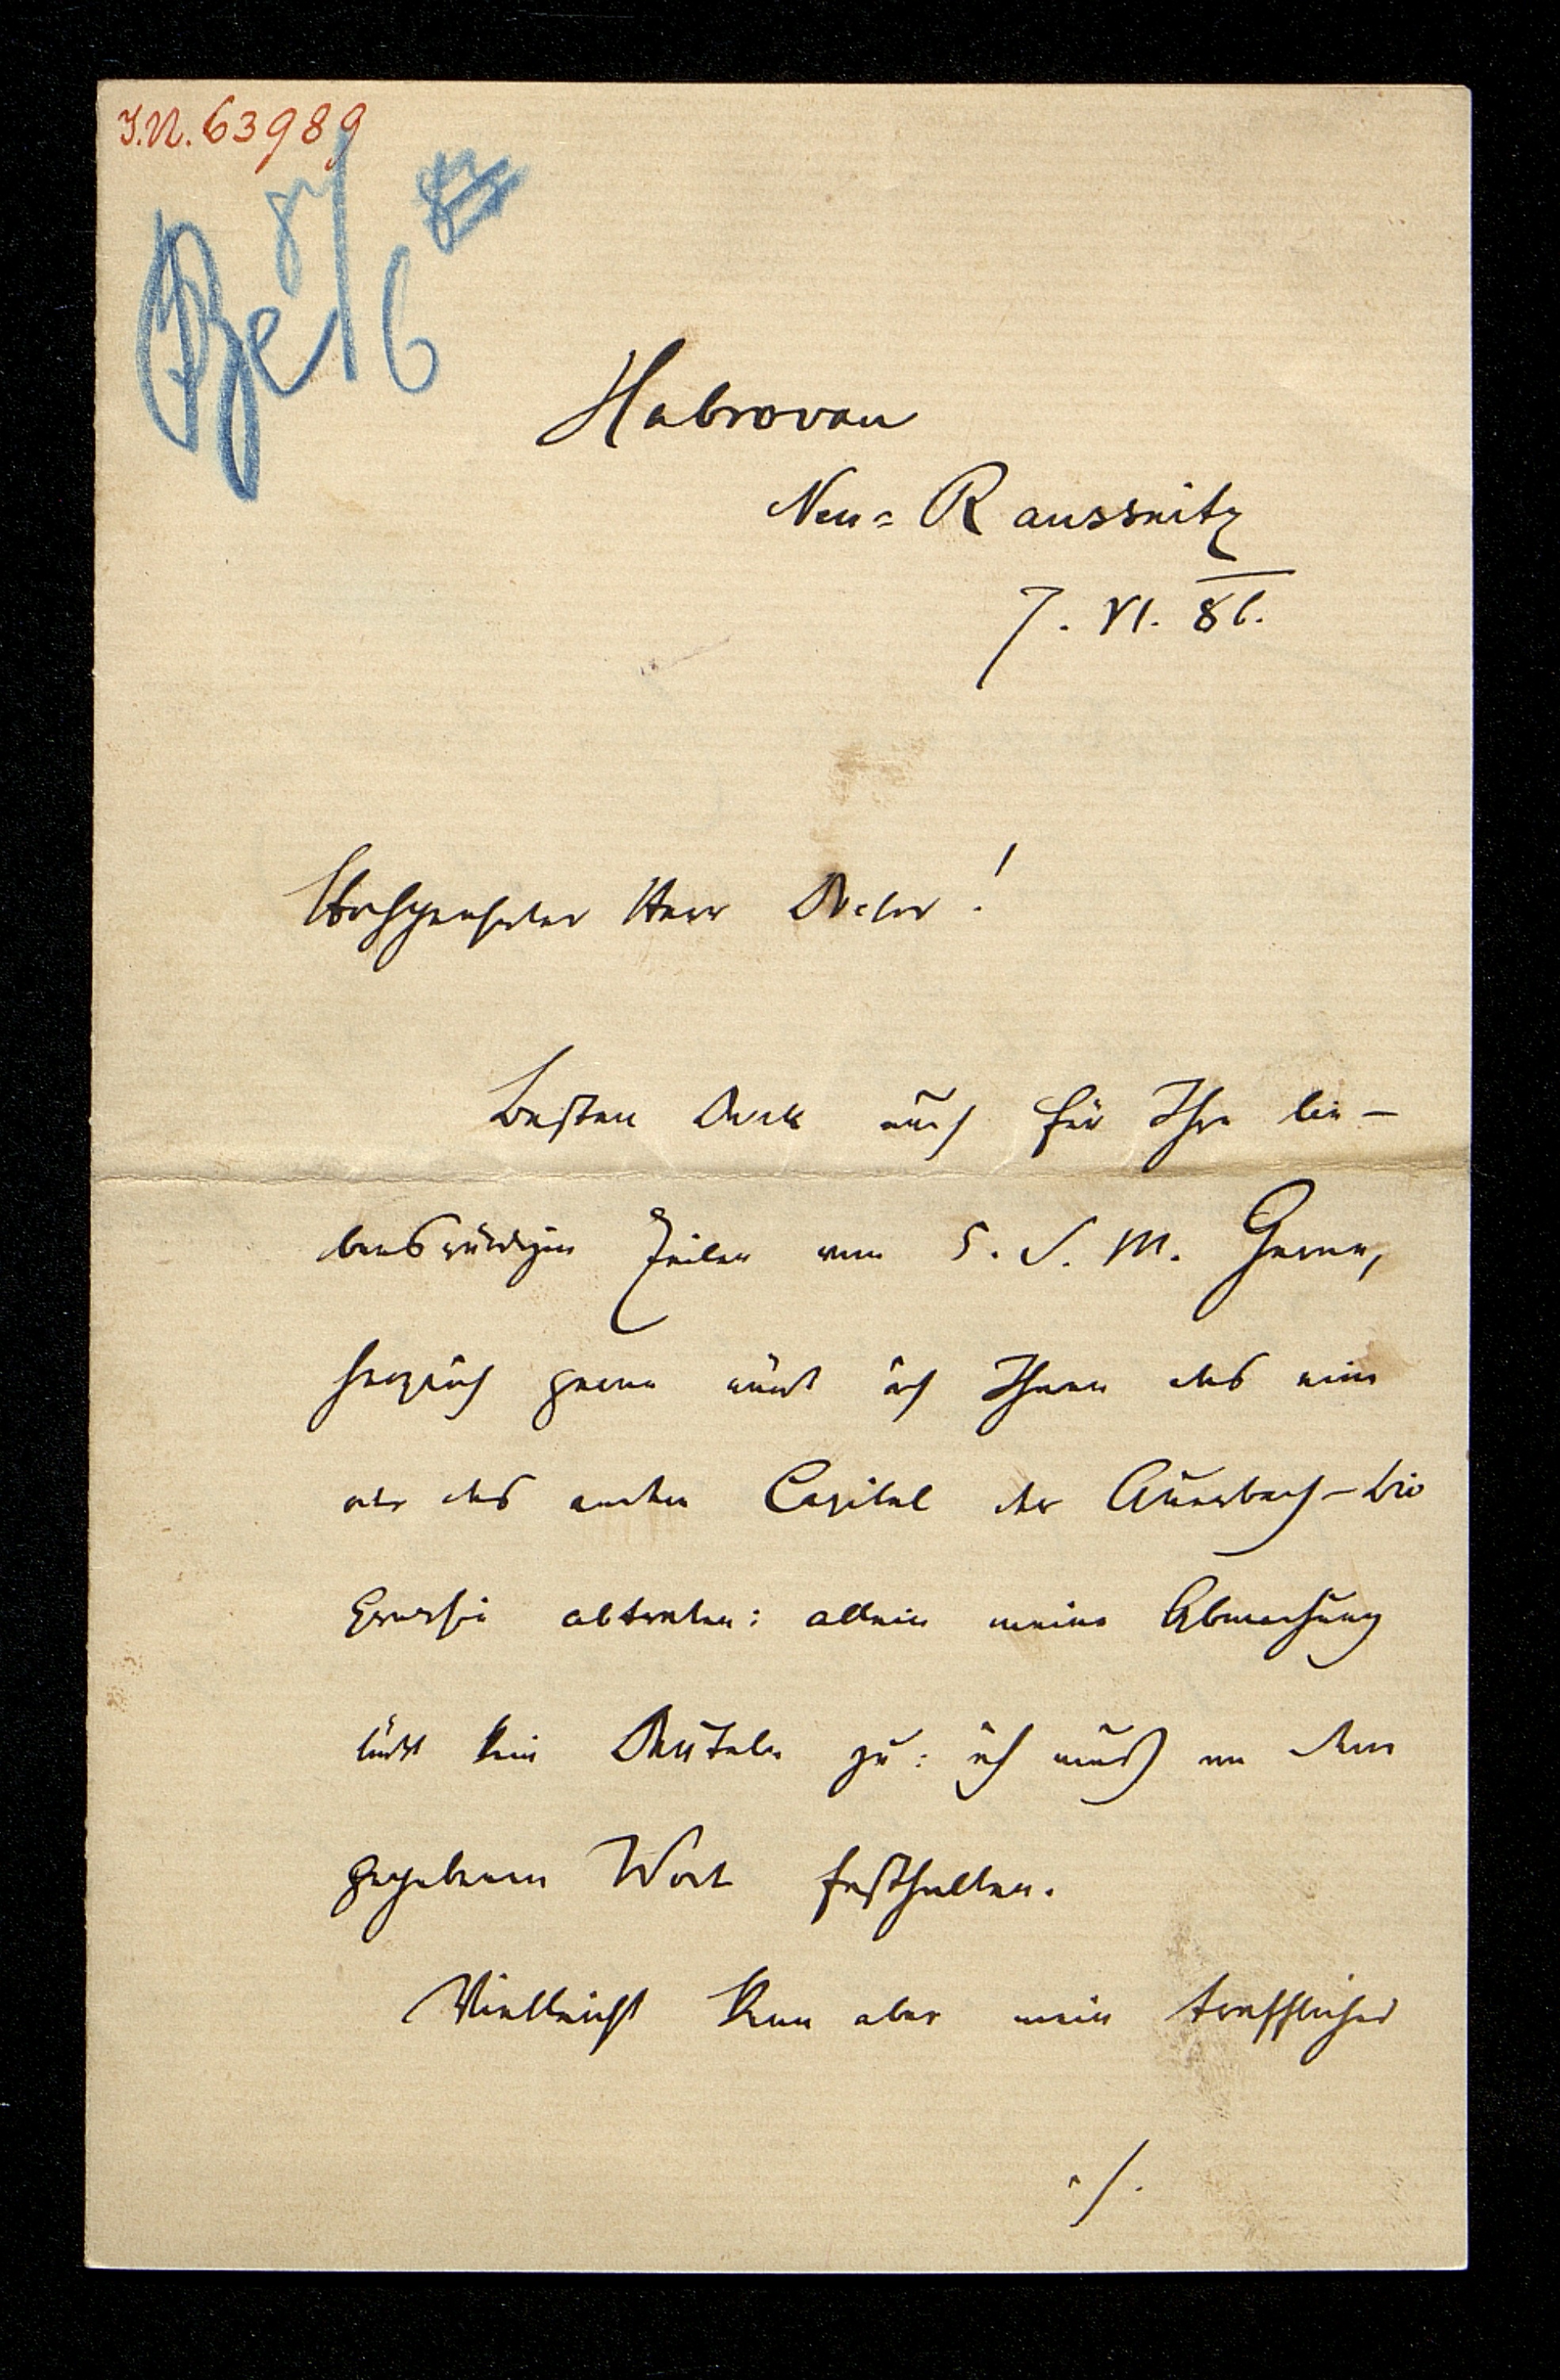 I.N. 63989
8/6
Habrovan
Neu=Raussnitz
7. VI. 86.
Hochgeehrter Herr Doctor!
Besten Dank auch für Ihre lie-
benswürdigen Zeilen vom 5. d. M. Gerne,
herzlich gerne würd ich Ihnen das eine
oder das andere Capitel der Auerbach-Bio
graphie abtreten: allein meine Abmachung
läßt kein Deuteln zu: ich muß an dem
gegebenen Wort festhalten.
Vielleicht kann aber mein trefflicher
./.